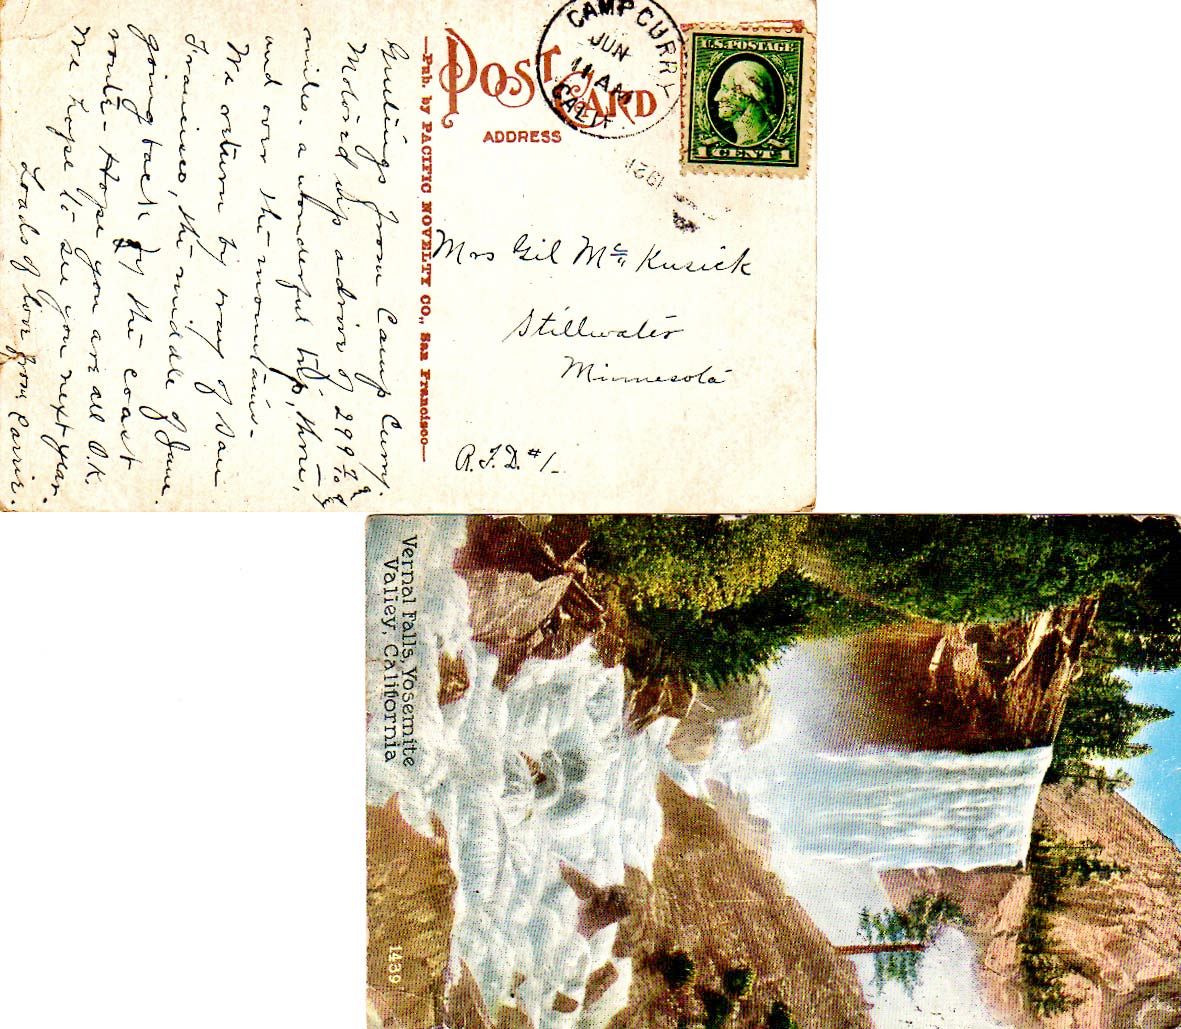 Greetings from Camp Curry.
Motored up a drive of 299 7/10
miles - a wonderful trip, thru,
and over the mountains -
We return by way of San
Francisco, the middle of June.
going back by the coast
route - Hope you are all O.K.
We hope to see you next year.
Loads of love from Carrie.
POST CARD
ADDRESS
—Pub. by PACIFIC NOVELTY CO., San Francisco—
CAMP CURRY
JUN
11 AM
CALIF.
1921
U.S. POSTAGE
1 CENT 1
Mrs Gil McKusick
Stillwater
Minnesota
R.F.D. #1-
Vernal Falls, Yosemite
Valley, California
1439